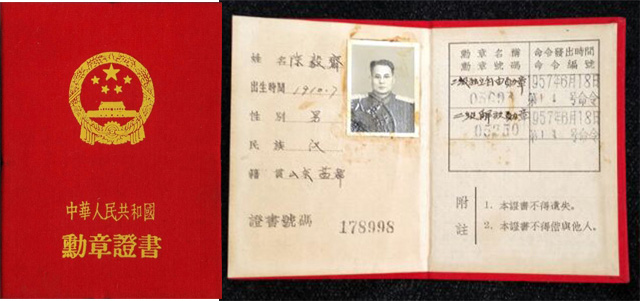 中華人民共和國
勳章證書
姓名 陈毅齋
出生時間 1910.7
性別 男
民族 汉
籍貫
證書號碼 178998
勳章名稱
勳章號碼
命令發出時間
命令編號
二級独立自由勋章
1957年6月18日
二級解放勋章
1957年6月18日
附註
1. 本證書不得遺失。
2. 本證書不得借與他人。